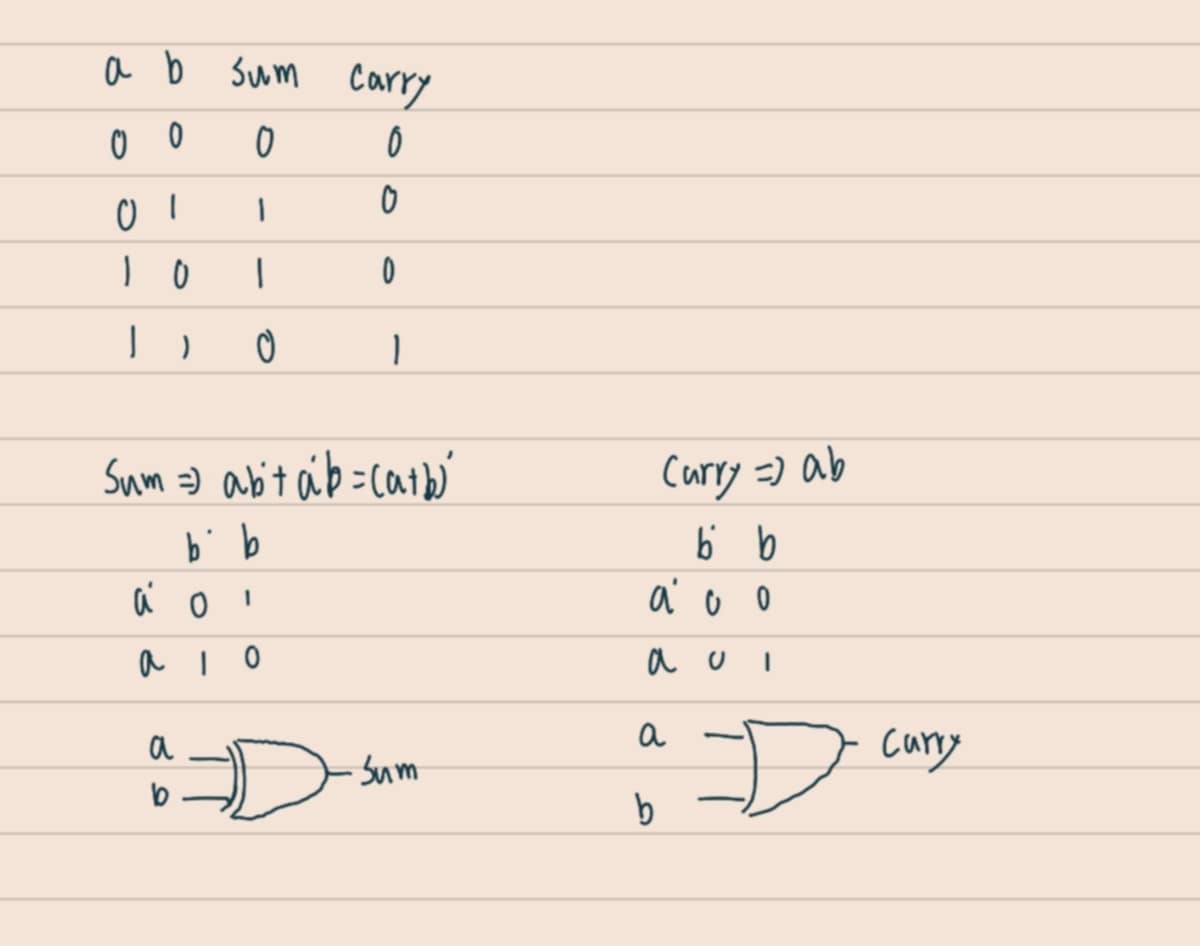 a b sum carry
0 0 0 0
0 1 1 0
1 0 1 0
1 1 0 1
Sum ⇒ ab'+a'b=(a+b)'
b' b
a' 0 1
a 1 0
a
b
Sum
Carry ⇒ ab
b' b
a' 0 0
a 0 1
a
b
Carry